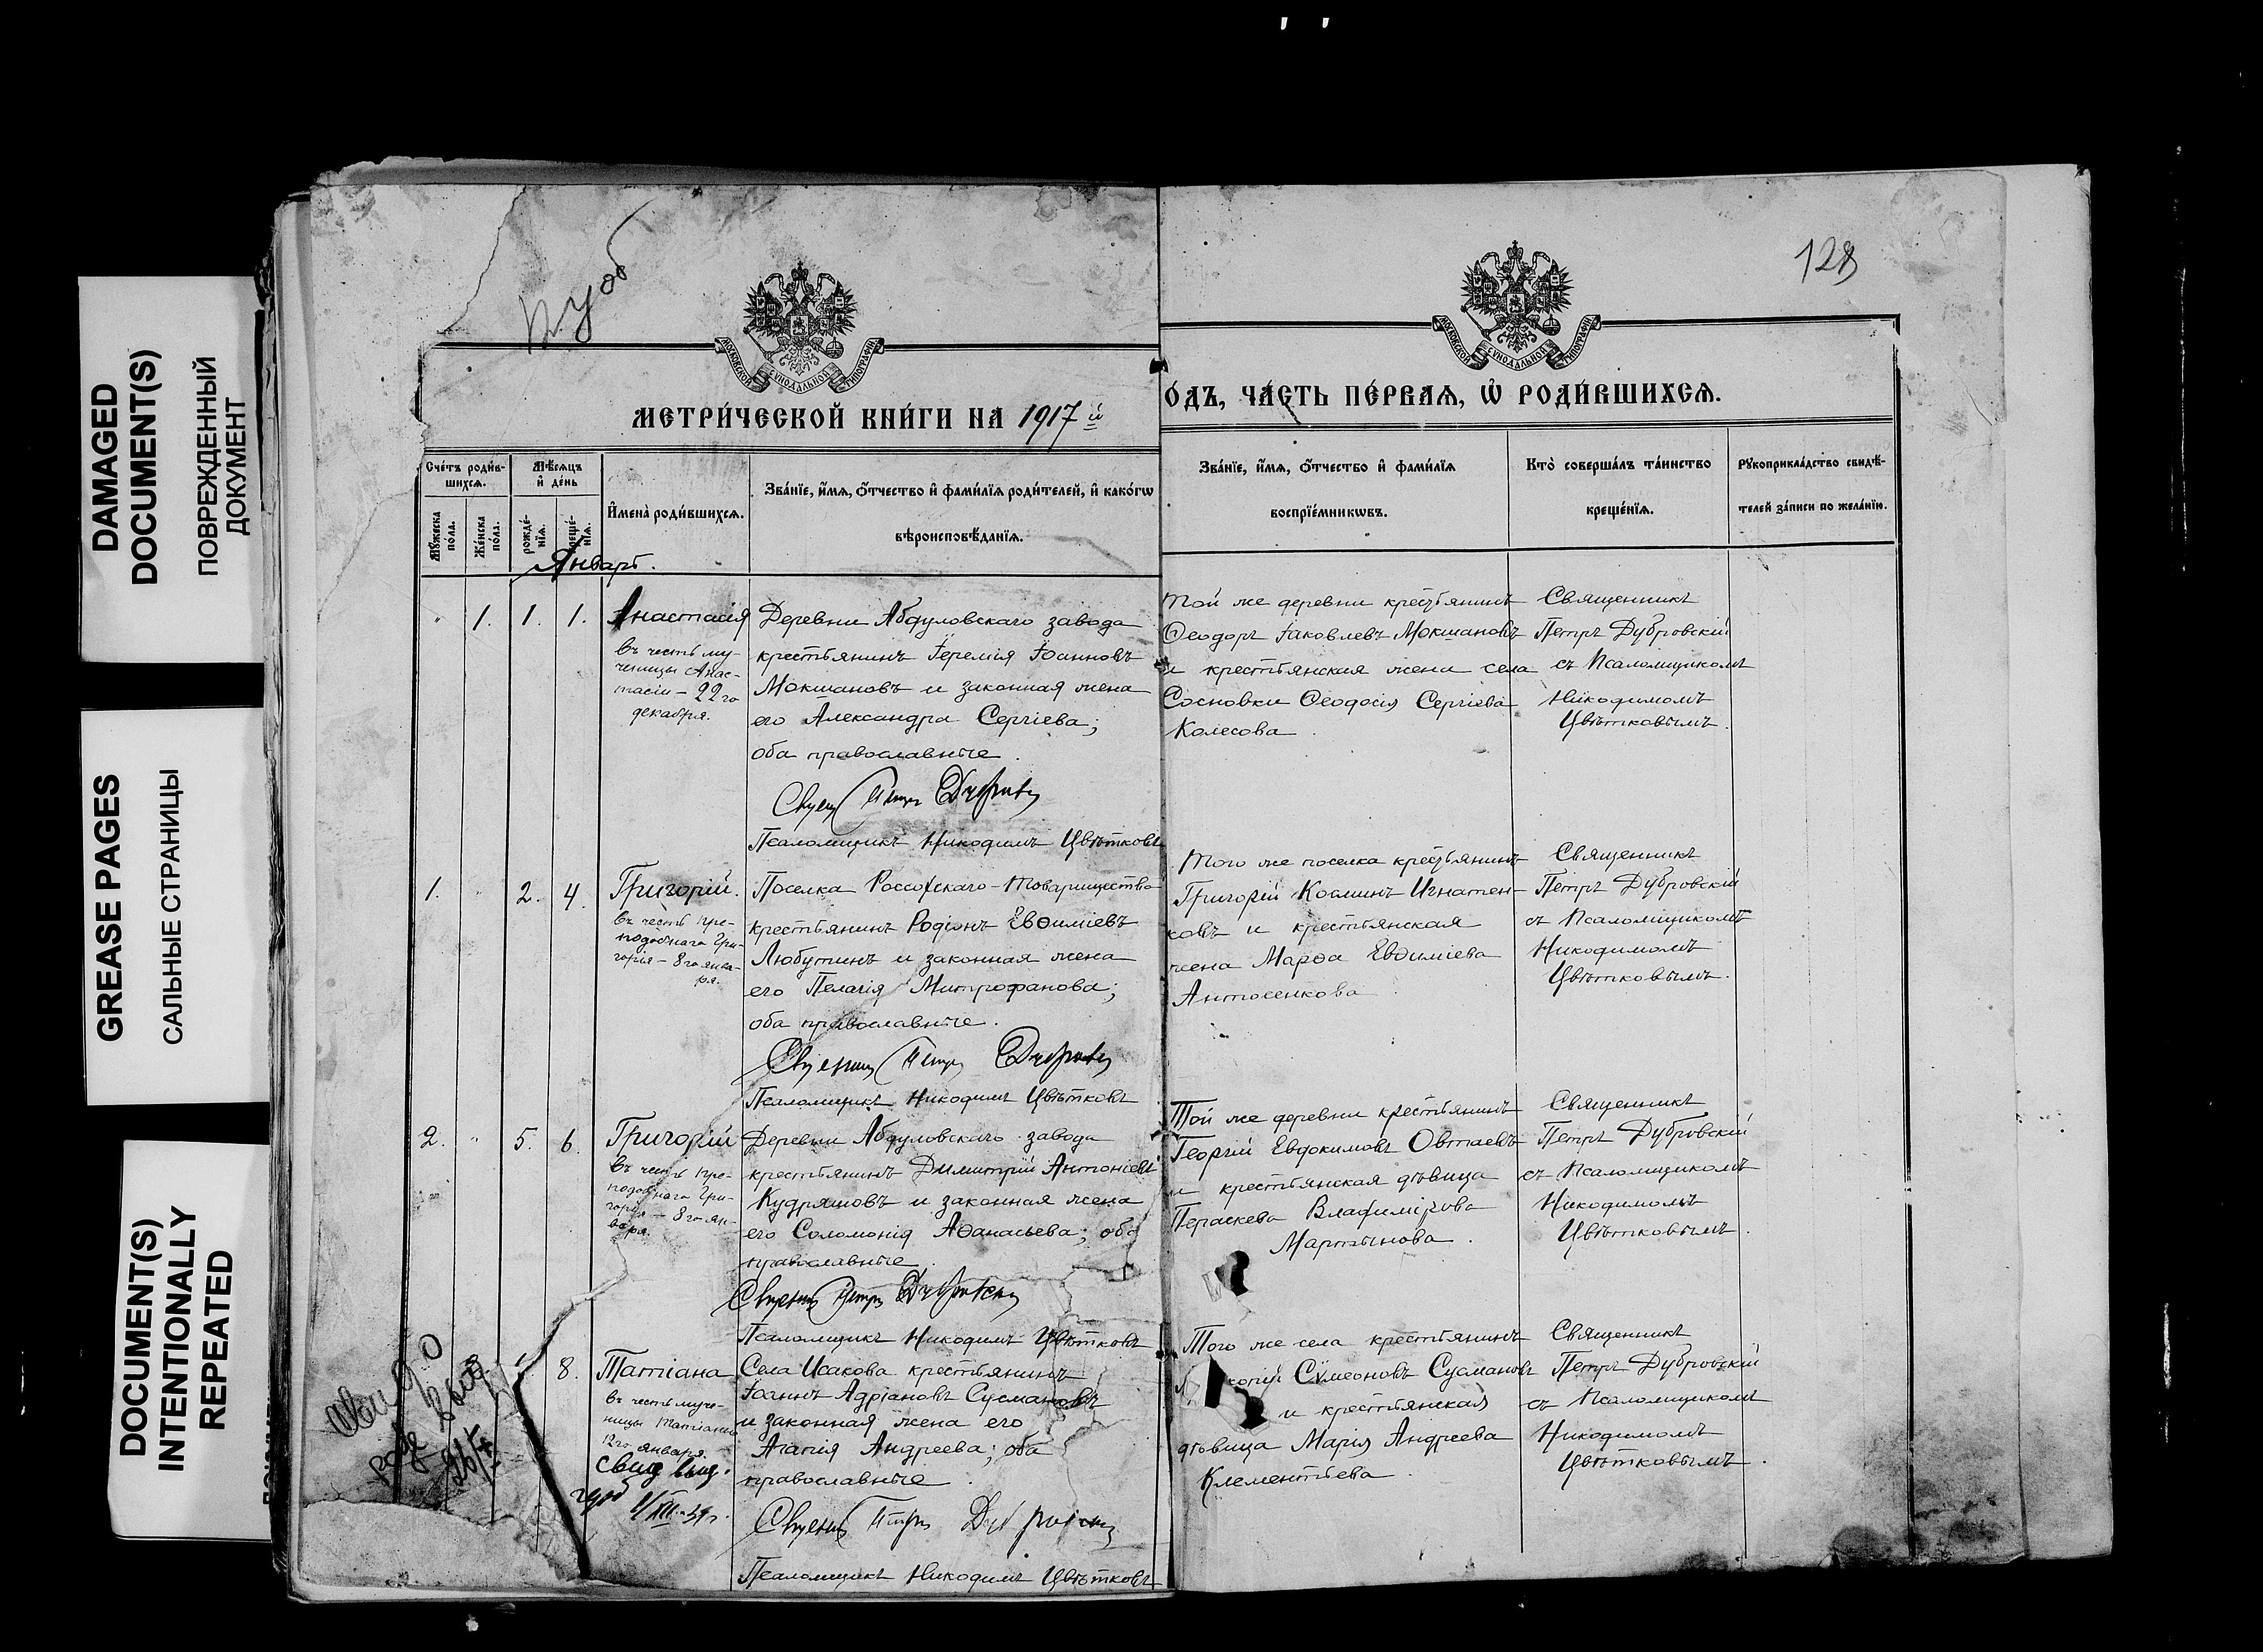 DAMAGED
DOCUMENT(S)
ПОВРЕЖДЕННЫЙ
ДОКУМЕНТ
GREASE PAGES
САЛЬНЫЕ СТРАНИЦЫ
DOCUMENT(S)
INTENTIONALLY
REPEATED
128
МОСКОВСКОЙ СѴНОДАЛЬНОЙ ТИПОГРАФІИ
МОСКОВСКОЙ СѴНОДАЛЬНОЙ ТИПОГРАФІИ
МЕТРИ́ЧЕСКОЙ КНИ́ГИ НА 1917 й
О́ДЪ, ЧА́СТЬ ПЕ́РВАѦ, Ѡ҆ РОДИ́ВШИХСѦ.
Сче́тъ роди́в-
шихсѧ.
Мѹ́жеска
по́ла.
Же́нска
по́ла.
Мѣ́сѧцъ
и҆ де́нь
рожде́-
нїѧ.
креще́-
нїѧ.
И҆мена̀ роди́вшихсѧ.
Зва́нїе, и҆́мѧ, ѻ҆́тчество и҆ фами́лїѧ роди́телей, и҆ како́гѡ
вѣроисповѣ́данїѧ.
Зва́нїе, и҆́мѧ, ѻ҆́тчество и҆ фами́лїѧ
воспрїе́мникѡвъ.
Кто̀ соверша́лъ та́инство
креще́нїѧ.
Рѹкоприкла́дство свидѣ́-
телей за́писи по жела́нїю.
Январь.
" 1. 1. 1.
Анастасія
въ честь му-
ченицы Анас-
тасіи – 22го
декабря.
Деревни Абдуловскаго завода
крестьянинъ Іеремія Іоанновъ
Мокшановъ и законная жена
его Александра Сергіева;
оба православные.
Псаломщикъ Никодимъ Цвѣтковъ
Той же деревни крестьянинъ
Ѳеодоръ Іаковлевъ Мокшановъ
и крестьянская жена села
Сосновки Ѳеодосія Сергіева
Колесова.
Священникъ
Петръ Дубровскій
съ Псаломщикомъ
Никодимомъ
Цвѣтковымъ.
1. " 2. 4.
Григорій.
въ честь пре-
подобнаго Гри-
горія – 8го янва-
ря.
Поселка Россофскаго-Товарищества
крестьянинъ Родіонъ Евѳиміевъ
Любутинъ и законная жена
его Пелагія Митрофанова;
оба православные.
Псаломщикъ Никодимъ Цвѣтковъ
Того же поселка крестьянинъ
Григорій Косминъ Игнатен-
ковъ и крестьянская
жена Марѳа Евѳиміева
Антосенкова
Священникъ
Петръ Дубровскій
съ Псаломщикомъ
Никодимомъ
Цвѣтковымъ.
2. " 5. 6.
Григорій
въ честь пре-
подобнаго Гри-
горія – 8го ян-
варя.
Деревни Абдуловскаго завода
крестьянинъ Димитрій Антоніевъ
Кудряшовъ и законная жена
его Соломонія Аѳанасьева; оба
православные.
Псаломщикъ Никодимъ Цвѣтковъ
Той же деревни крестьянинъ
Георгій Евдокимовъ Овтаевъ
и крестьянская дѣвица
Параскева Владимірова
Мартынова.
Священникъ
Петръ Дубровскій
съ Псаломщикомъ
Никодимомъ
Цвѣтковымъ.
8.
Татіана
въ честь муче-
ницы Татіаны
12го января.
Свид выд.
1/XII-39г.
Села Исакова крестьянинъ
Іоаннъ Адріановъ Сусмановъ
и законная жена его
Агапія Андреева; оба
православные.
Псаломщикъ Никодимъ Цвѣтковъ
Того же села крестьянинъ
Сѵмеоновъ Сусмановъ
и крестьянская
дѣвица Марія Андреева
Клементьева.
Священникъ
Петръ Дубровскій
съ Псаломщикомъ
Никодимомъ
Цвѣтковымъ.